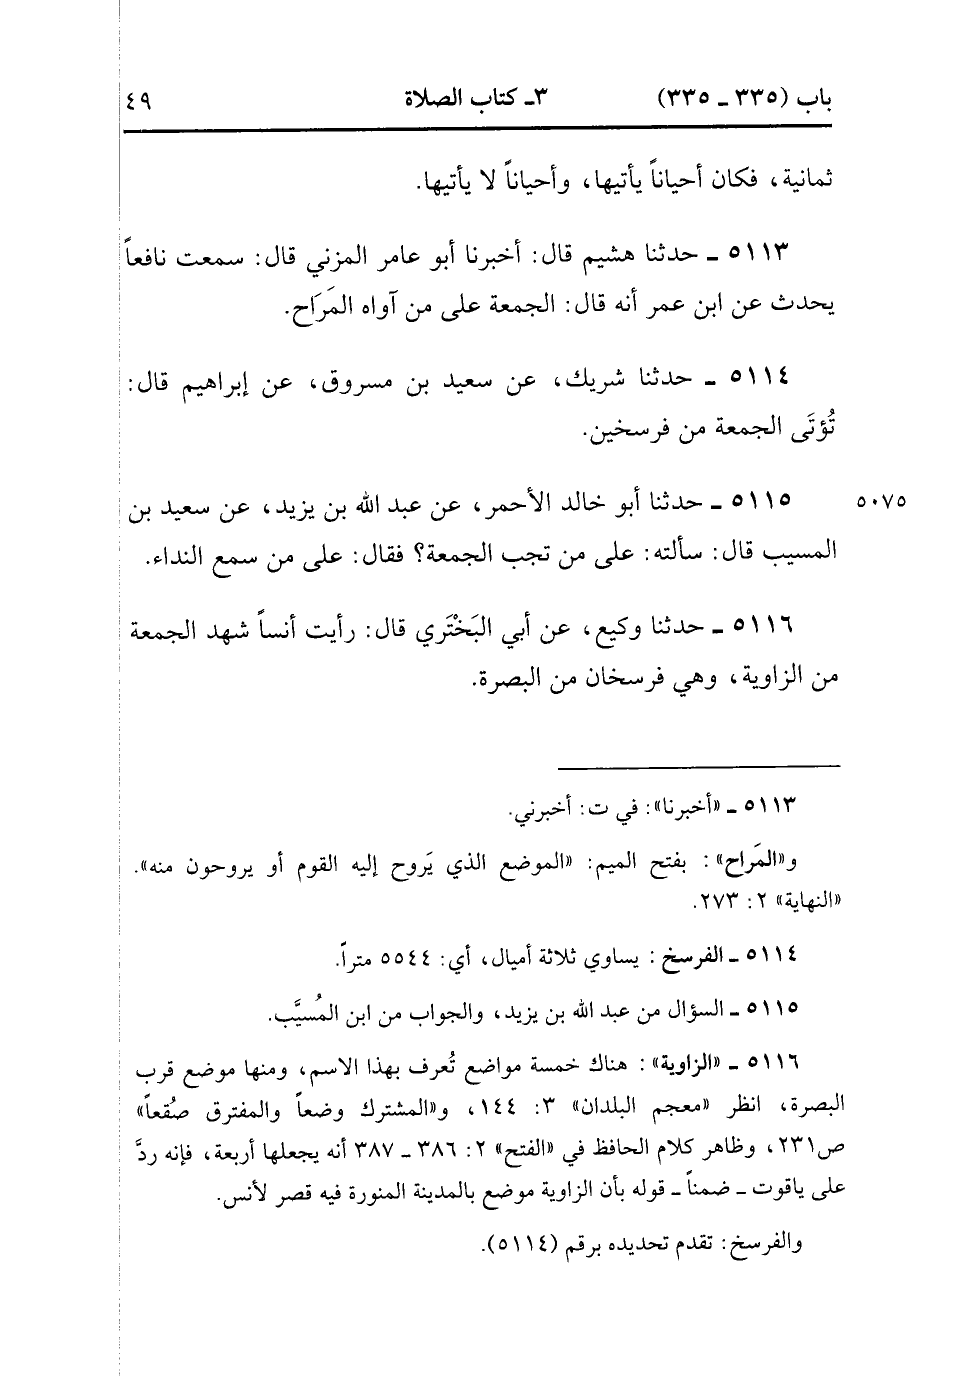 باب (٣٣٥ ـ ٣٣٥) ٣ـ كتاب الصلاة ٤٩
ثمانية، فكان أحياناً يأتيها، وأحياناً لا يأتيها.
٥١١٣ ـ حدثنا هشيم قال: أخبرنا أبو عامر المزني قال: سمعت نافعاً
يحدث عن ابن عمر أنه قال: الجمعة على من آواه المَرَاح.
٥١١٤ ـ حدثنا شريك، عن سعيد بن مسروق، عن إبراهيم قال:
تُؤتَى الجمعة من فرسخين.
٥١١٥ ـ حدثنا أبو خالد الأحمر، عن عبد الله بن يزيد، عن سعيد بن ٥٠٧٥
المسيب قال: سألته: على من تجب الجمعة؟ فقال: على من سمع النداء.
٥١١٦ ـ حدثنا وكيع، عن أبي البَخْتَري قال: رأيت أنساً شهد الجمعة
من الزاوية، وهي فرسخان من البصرة.
٥١١٣ ـ «أخبرنا»: في ت: أخبرني.
و«المَراح»: بفتح الميم: «الموضع الذي يَروح إليه القوم أو يروحون منه».
«النهاية» ٢: ٢٧٣.
٥١١٤ ـ الفرسخ: يساوي ثلاثة أميال، أي: ٥٥٤٤ متراً.
٥١١٥ ـ السؤال من عبد الله بن يزيد، والجواب من ابن المُسيَّب.
٥١١٦ ـ «الزاوية»: هناك خمسة مواضع تُعرف بهذا الاسم، ومنها موضع قرب
البصرة، انظر «معجم البلدان» ٣: ١٤٤، و«المشترك وضعاً والمفترق صُقعاً»
ص٢٣١، وظاهر كلام الحافظ في «الفتح» ٢: ٣٨٦ ـ ٣٨٧ أنه يجعلها أربعة، فإنه ردَّ
على ياقوت ـ ضمناً ـ قوله بأن الزاوية موضع بالمدينة المنورة فيه قصر لأنس.
والفرسخ: تقدم تحديده برقم (٥١١٤).